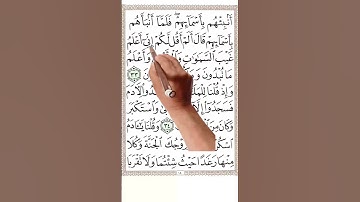 أَنْبِئْهُمْ بِأَسْمَآئِهِمْ فَلَمَّآ أَنْبَأَهُمْ
بِأَسْمَآئِهِمْ قَالَ أَلَمْ أَقُلْ لَكُمْ إِنِّىٓ أَعْلَمُ
غَيْبَ السَّمٰوٰتِ وَأَعْلَمُ
مَا تُبْدُونَ وَمَا ٣٣
وَإِذْ قُلْنَا لِاٰدَمَ
فَسَجَدُوٓا وَاسْتَكْبَرَ
وَكَانَ مِنَ ٣٤ وَقُلْنَا يٰٓاٰدَمُ
اسْكُنْ الْجَنَّةَ وَكُلَا
مِنْهَا رَغَدًا حَيْثُ شِئْتُمَا وَلَا تَقْرَبَا